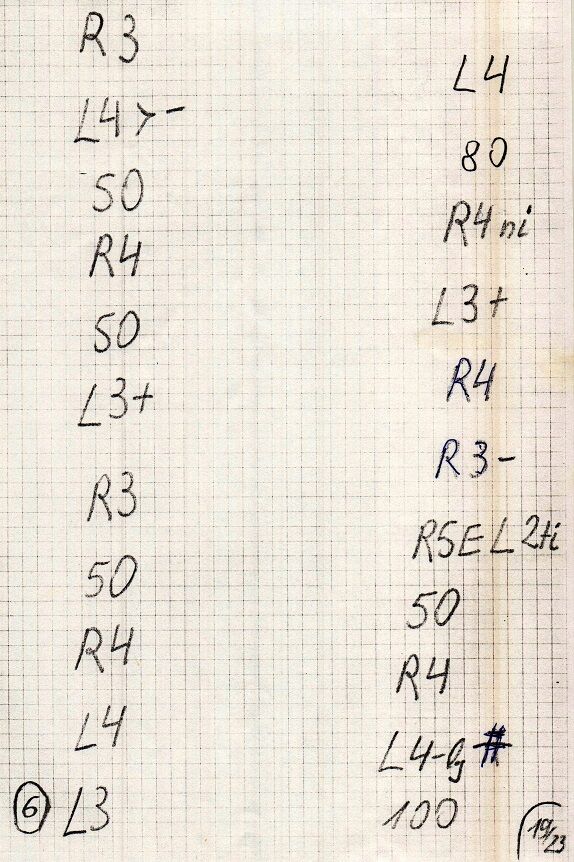 R3
L4>-
50
R4
50
L3+
R3
50
R4
L4
6 L3
L4
80
R4 ni
L3+
R4
R3-
R5E L2ti
50
R4
L4-lg #
100
19/23